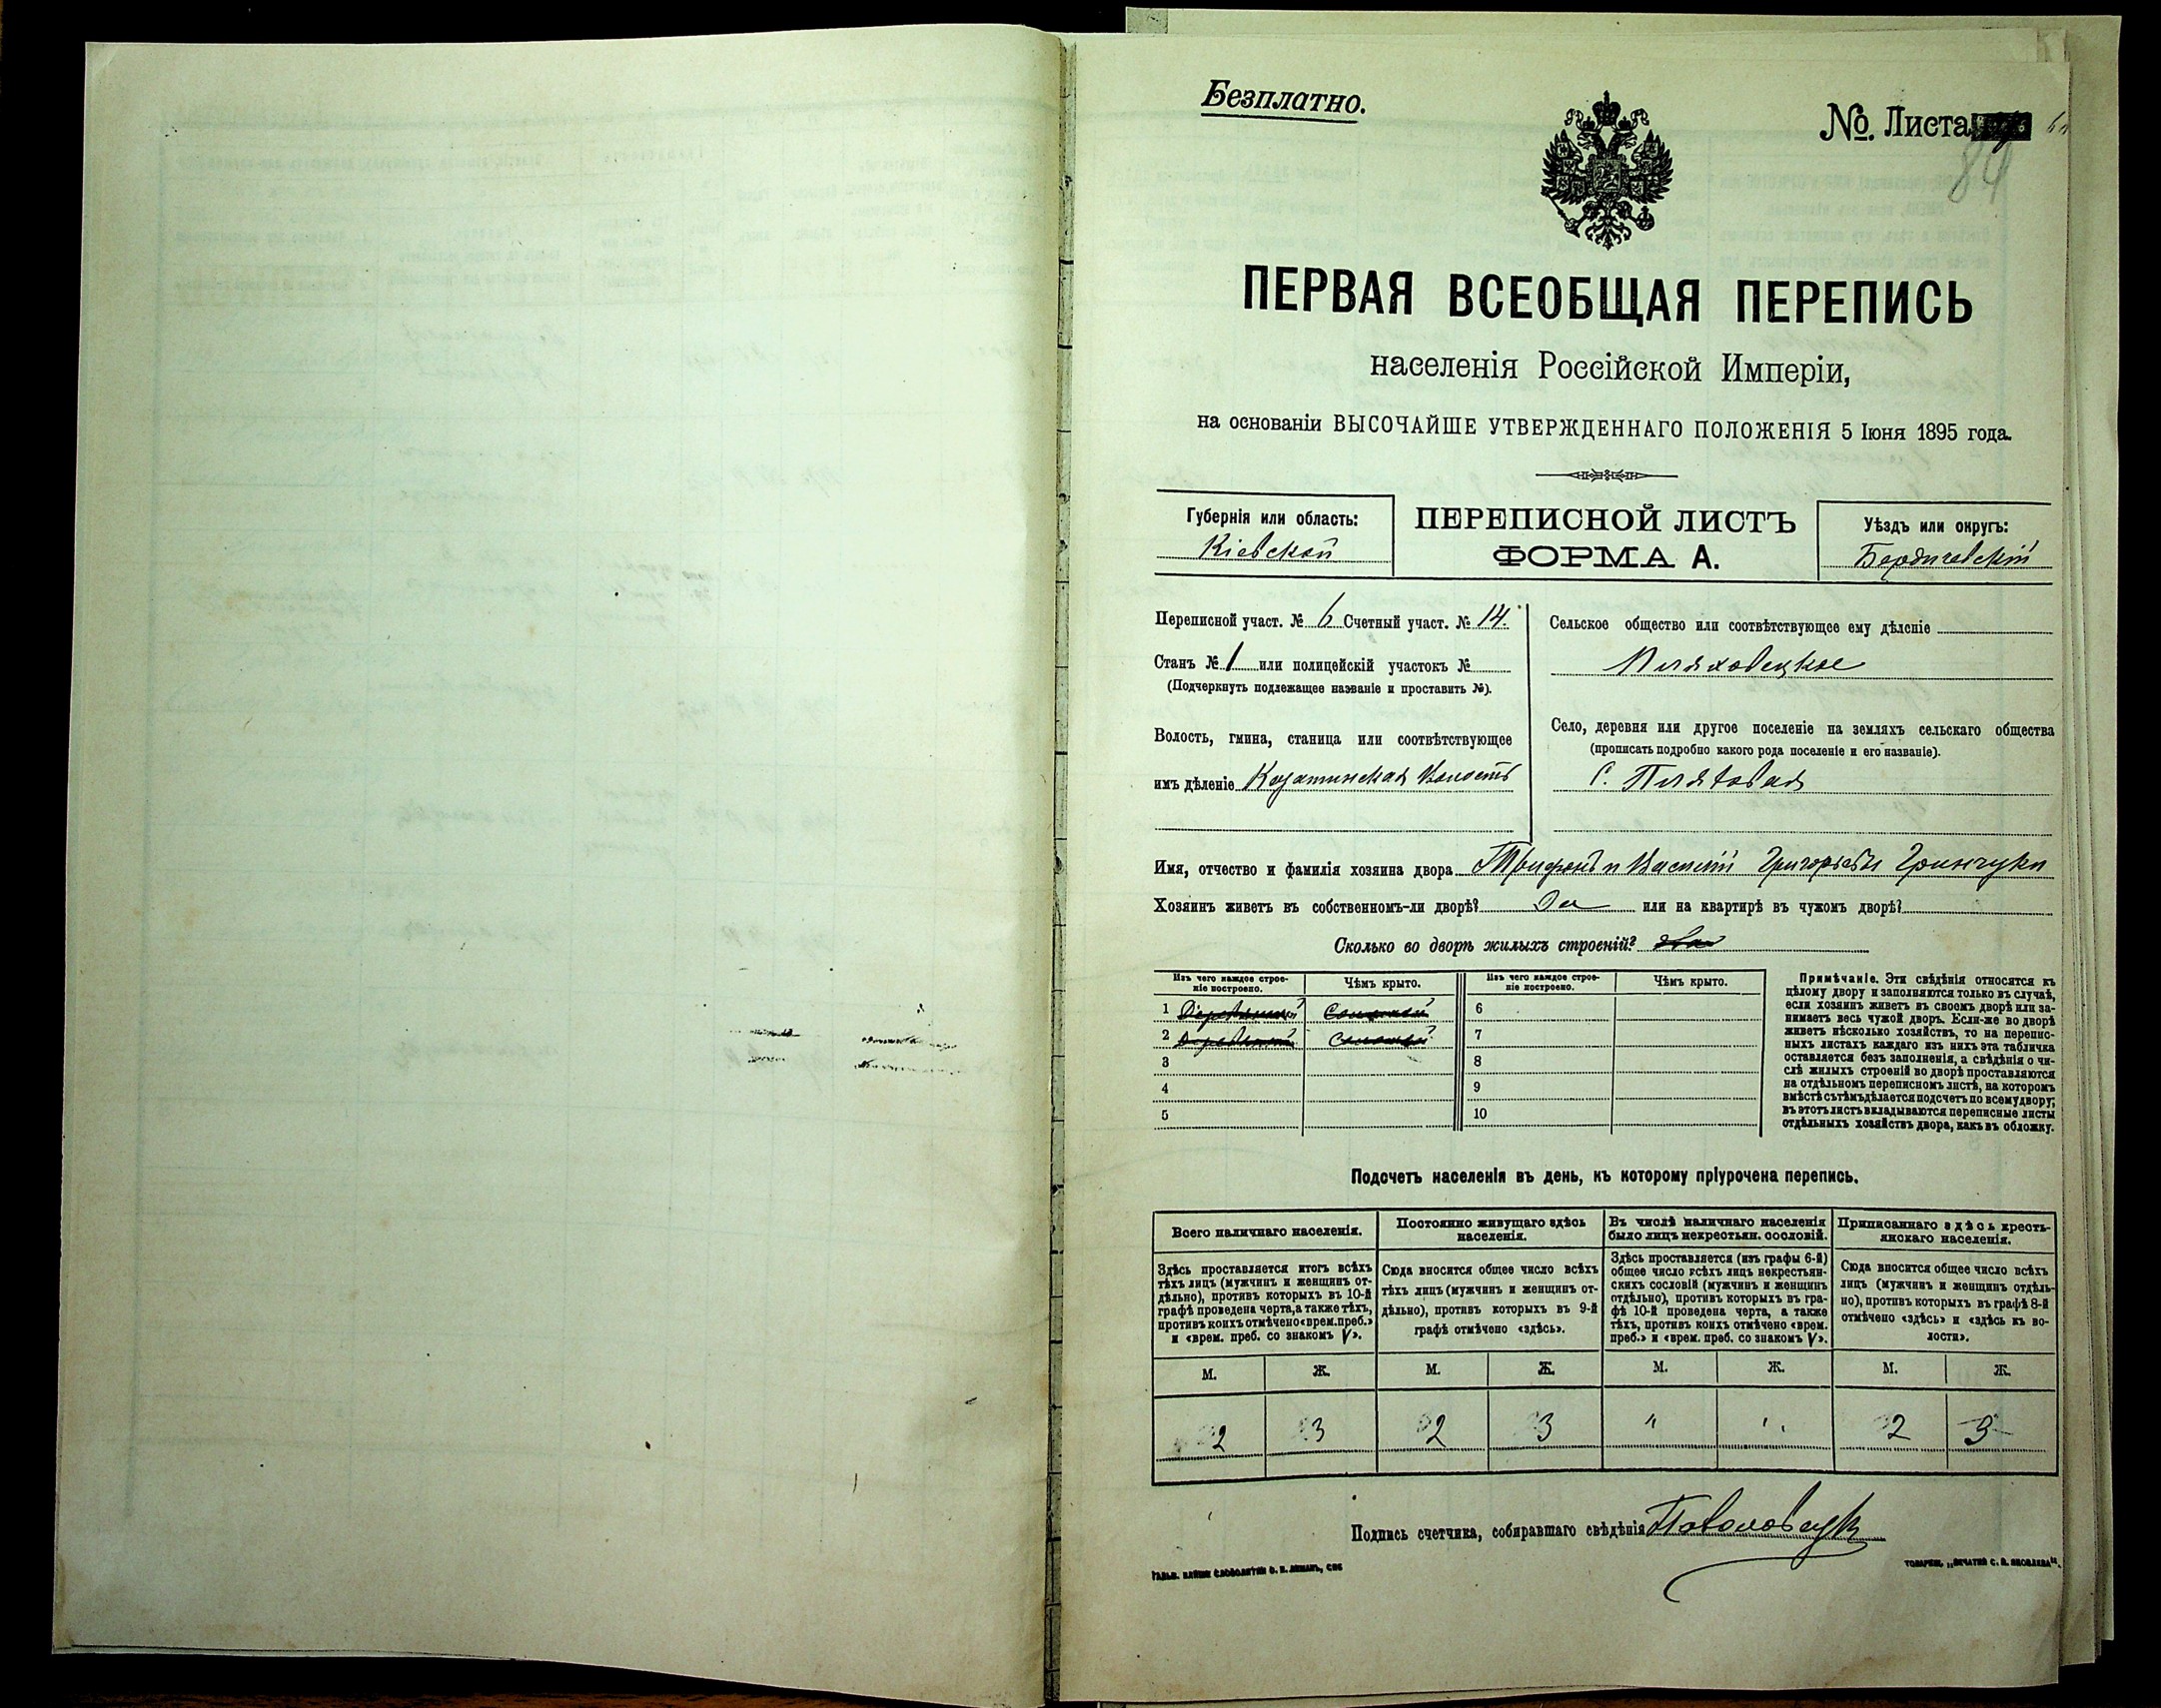 Безплатно.
№ Листа
84
ПЕРВАЯ ВСЕОБЩАЯ ПЕРЕПИСЬ
населенія Россійской Имперіи,
на основаніи ВЫСОЧАЙШЕ УТВЕРЖДЕННАГО ПОЛОЖЕНІЯ 5 Іюня 1895 года.
Губернія или область:
Кіевской
ПЕРЕПИСНОЙ ЛИСТЪ
ФОРМА А.
Уѣздъ или округъ:
Бердичевскій
Переписной участ. № 6 Счетный участ. № 14.
Станъ № 1 или полицейскій участокъ №
(Подчеркнуть подлежащее названіе и проставить №).
Волость, гмина, станица или соотвѣтствующее
имъ дѣленіе Козатинская Волость
Сельское общество или соотвѣтствующее ему дѣленіе
Пляховецкое
Село, деревня или другое поселеніе на земляхъ сельскаго общества
(прописать подробно какого рода поселеніе и его названіе).
С. Пляховая
Имя, отчество и фамилія хозяина двора Трифонъ и Василій Григорьевы Гринчуки
Хозяинъ живетъ въ собственномъ-ли дворѣ? Да или на квартирѣ въ чужомъ дворѣ?
Сколько во дворѣ жилыхъ строеній? два
Изъ чего каждое строе-
ніе построено.
Чѣмъ крыто.
Изъ чего каждое строе-
ніе построено.
Чѣмъ крыто.
1 Деревянный Соломой 6
2 Деревянный Соломой 7
3 8
4 9
5 10
Примѣчаніе. Эти свѣдѣнія относятся къ
цѣлому двору и заполняются только въ случаѣ,
если хозяинъ живетъ въ своемъ дворѣ или за-
нимаетъ весь чужой дворъ. Если-же во дворѣ
живетъ нѣсколько хозяйствъ, то на перепис-
ныхъ листахъ каждаго изъ нихъ эта табличка
оставляется безъ заполненія, а свѣдѣнія о чи-
слѣ жилыхъ строеній во дворѣ проставляются
на отдѣльномъ переписномъ листѣ, на которомъ
вмѣстѣ съ тѣмъ дѣлается подсчетъ по всему двору;
въ этотъ листъ вкладываются переписные листы
отдѣльныхъ хозяйствъ двора, какъ въ обложку.
Подсчетъ населенія въ день, къ которому пріурочена перепись.
Всего наличнаго населенія.
Постоянно живущаго здѣсь
населенія.
Въ числѣ наличнаго населенія
было лицъ некрестьян. сословій.
Приписаннаго здѣсь кресть-
янскаго населенія.
Здѣсь проставляется итогъ всѣхъ
тѣхъ лицъ (мужчинъ и женщинъ от-
дѣльно), противъ которыхъ въ 10-й
графѣ проведена черта, а также тѣхъ,
противъ коихъ отмѣчено «врем. преб.»
и «врем. преб. со знакомъ V».
Сюда вносится общее число всѣхъ
тѣхъ лицъ (мужчинъ и женщинъ от-
дѣльно), противъ которыхъ въ 9-й
графѣ отмѣчено «здѣсь».
Здѣсь проставляется (изъ графы 6-й)
общее число всѣхъ лицъ некрестьян-
скихъ сословій (мужчинъ и женщинъ
отдѣльно), противъ которыхъ въ гра-
фѣ 10-й проведена черта, а также
тѣхъ, противъ коихъ отмѣчено «врем.
преб.» и «врем. преб. со знакомъ V».
Сюда вносится общее число всѣхъ
лицъ (мужчинъ и женщинъ отдѣль-
но), противъ которыхъ въ графѣ 8-й
отмѣчено «здѣсь» и «здѣсь въ во-
лости».
М. Ж. М. Ж. М. Ж. М. Ж.
2 3 2 3 " " 2 3
Подпись счетчика, собиравшаго свѣдѣнія